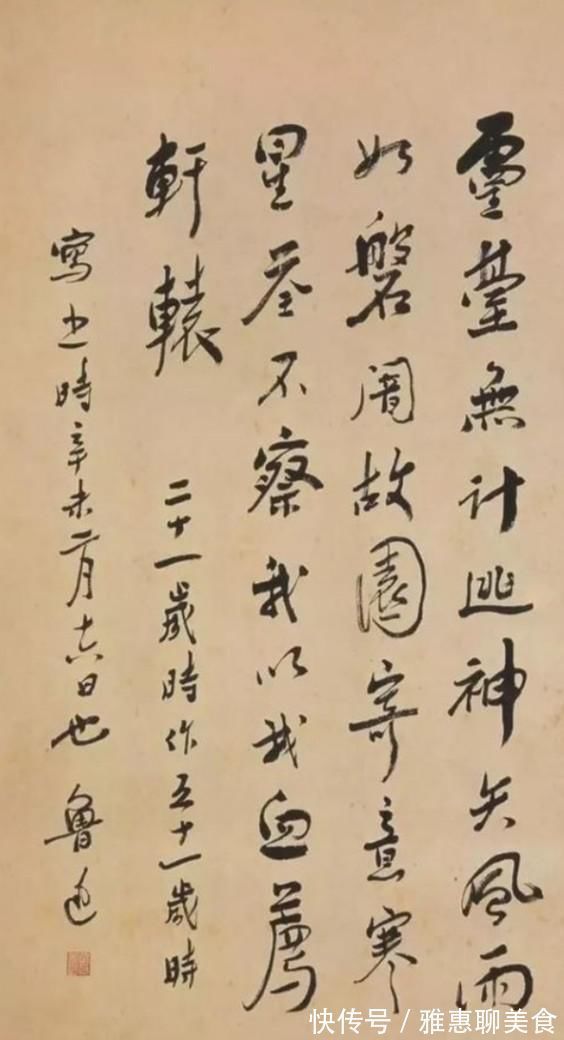 靈臺無計逃神矢風雨
如磐闇故園寄意寒
星荃不察我以我血薦
軒轅 二十一歲時作五十一歲時
寫之時辛未二月十六日也 魯迅
快传号 / 雅惠聊美食